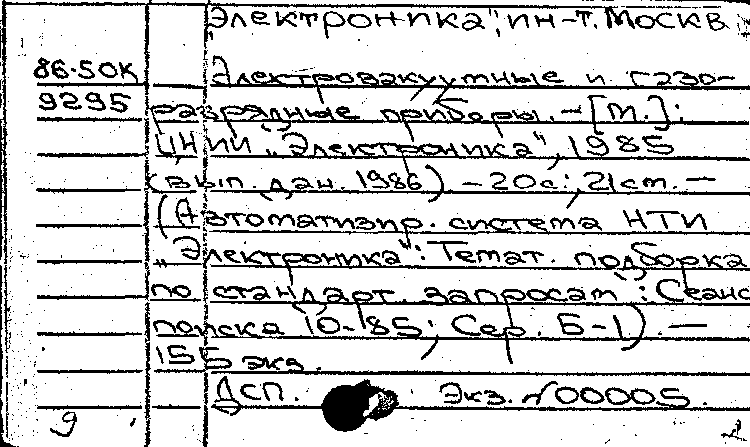 „Электроника", ин-т. Москв
86-50К Электровакуумные и газо-
9295 разрядные приборы. - [М.]:
ЦНИИ „Электроника", 1985
(вып. дан. 1986). - 20с.; 21см. -
(Автоматизир. система НТИ
„Электроника": Темат. подборка
по стандарт. запросам : Сеанс
поиска 10-85; Сер. Б-1). -
155 экз.
ДСП. Экз. №00005.
9